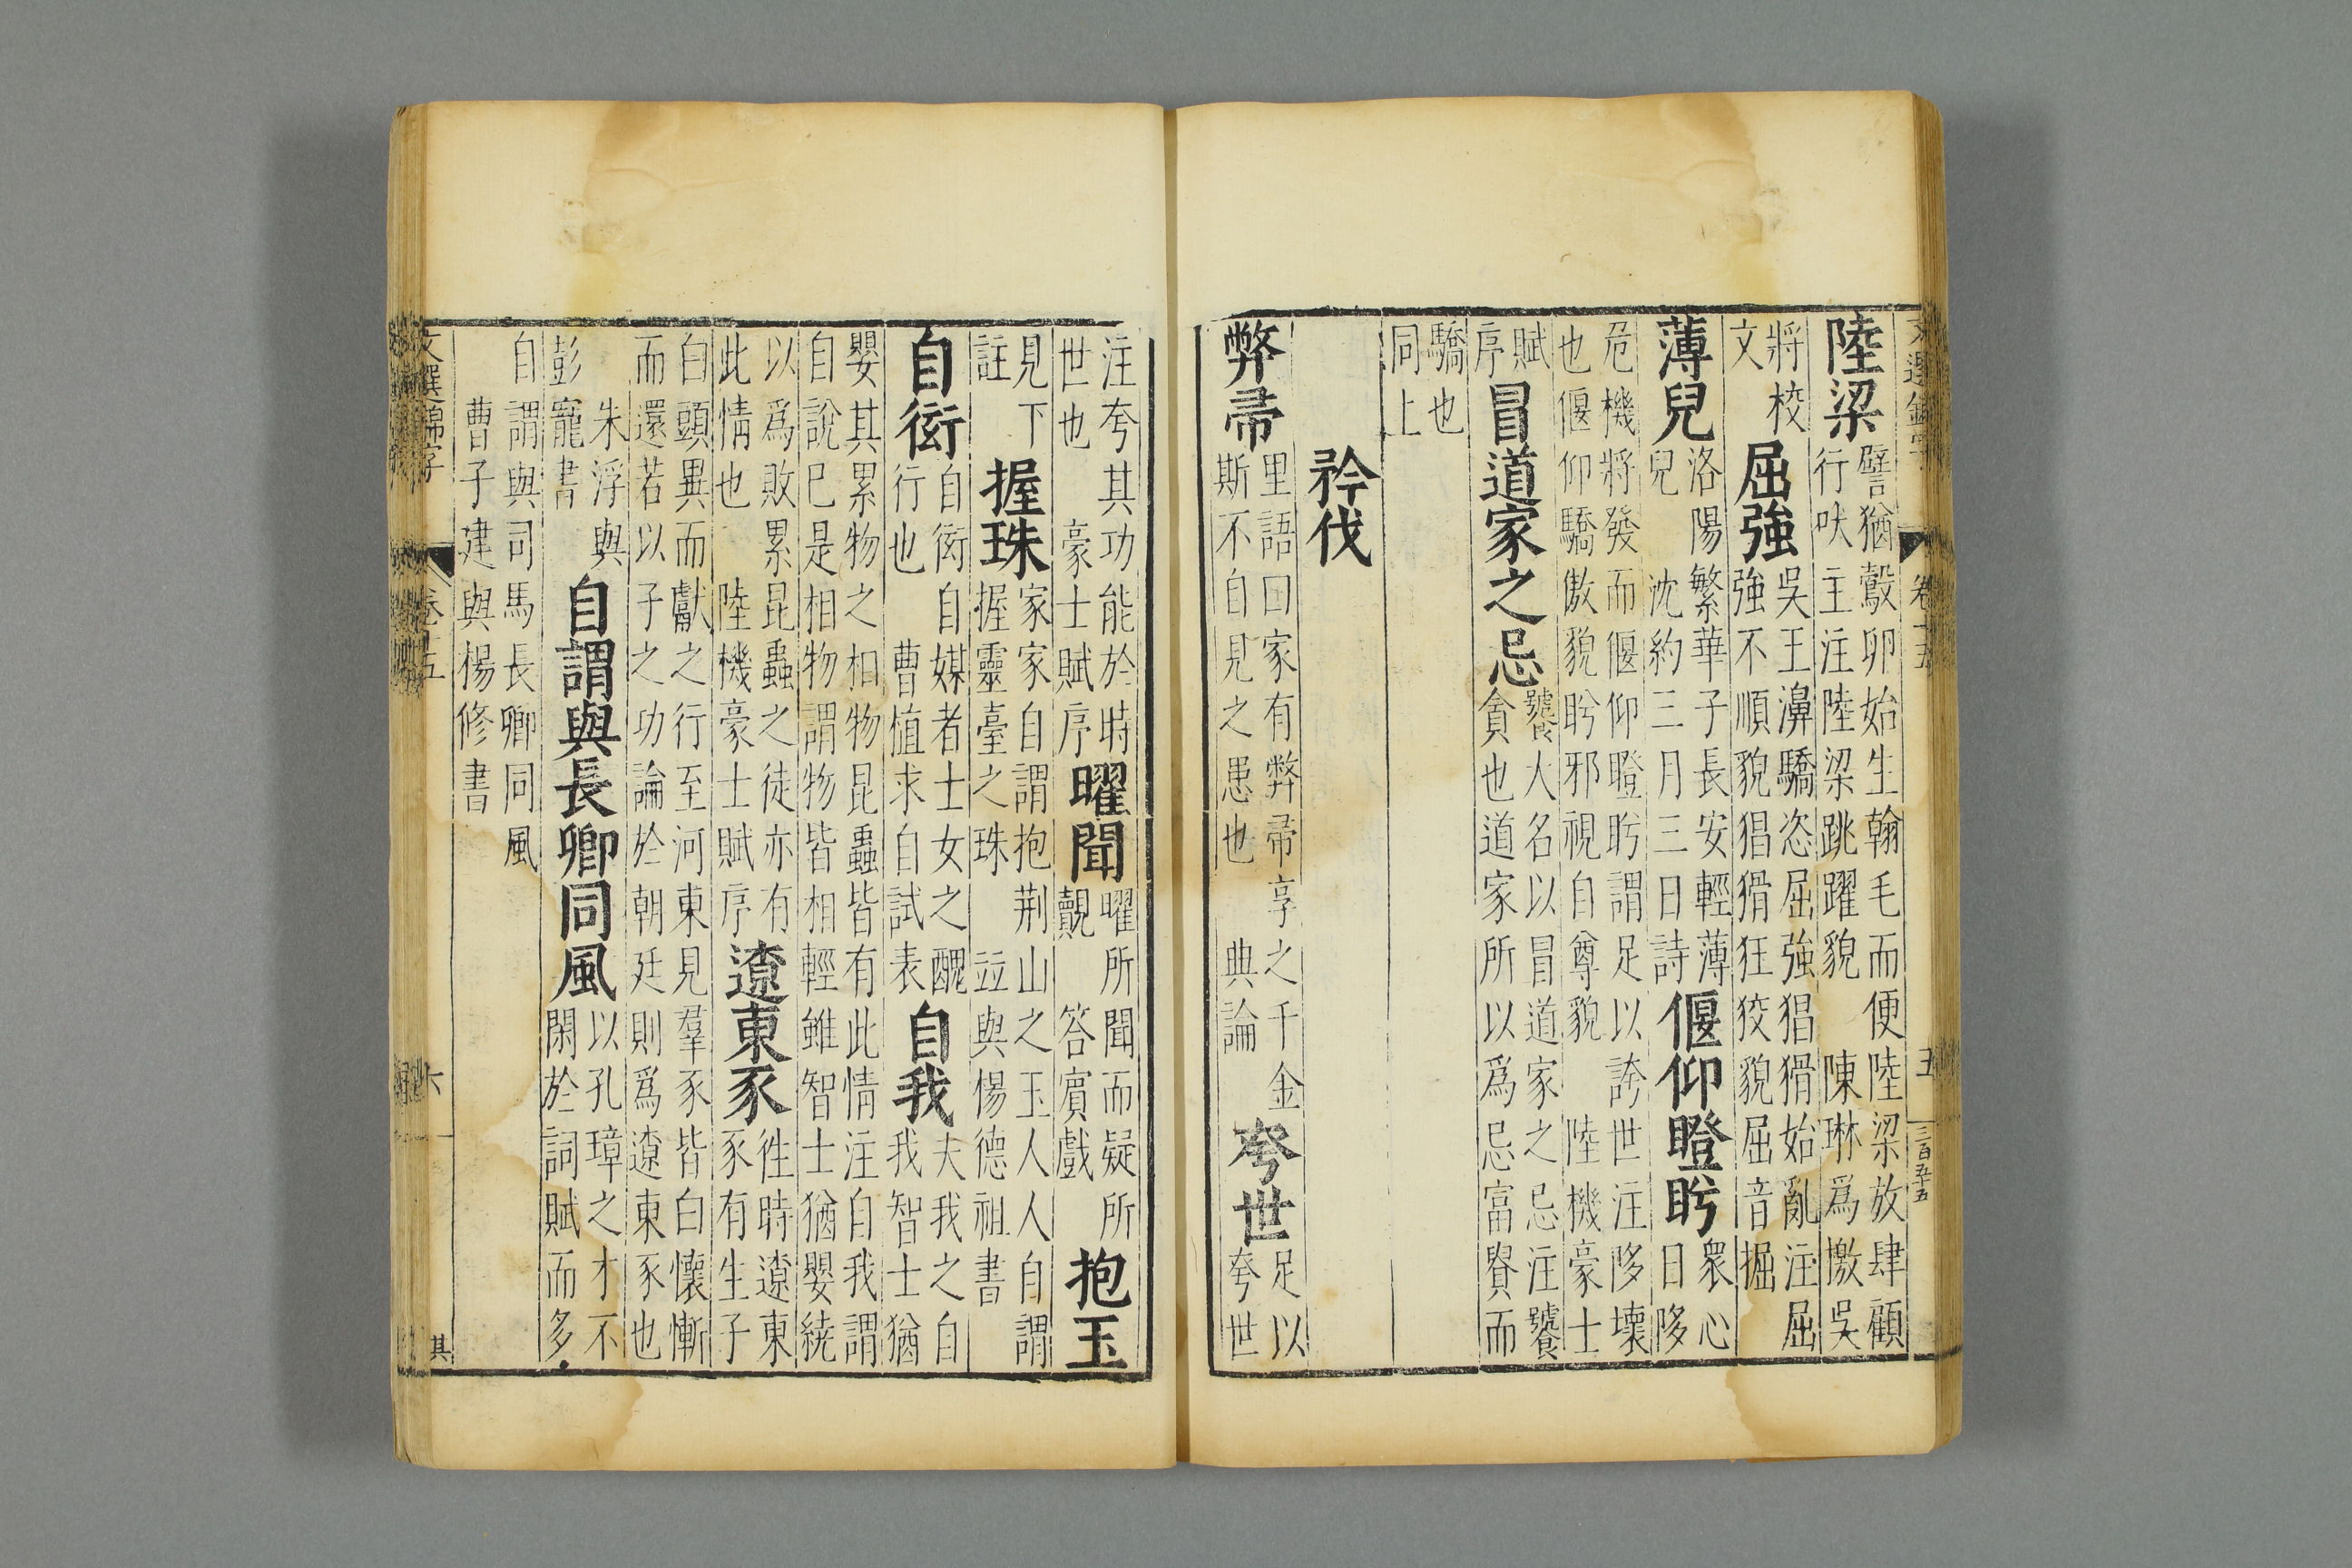 文選錦字 卷十五 五 三百五十五
陸梁 譬猶鷇卵始生翰毛而便陸梁放肆顧
行吠主注陸梁跳躍貌 陳琳爲檄吳
將校
文 屈強 吳王濞驕恣屈強猖猾始亂注屈
強不順貌猖猾狂狡貌屈音掘
薄兒 洛陽繁華子長安輕薄
兒 沈約三月三日詩 偃仰瞪眄 衆心
日陊
危機將發而偃仰瞪眄謂足以誇世注陊壞
也偃仰驕傲貌眄邪視自尊貌 陸機豪士
賦
序 冒道家之忌 饕大名以冒道家之忌注饕
貪也道家所以爲忌富貴而
驕也
同上
矜伐
弊帚 里語曰家有弊帚享之千金
斯不自見之患也 典論 夸世 足以
夸世
注夸其功能於時
世也 豪士賦序 曜聞 曜所聞而疑所
覿 答賓戲 抱玉
見下
註 握珠 家家自謂抱荆山之玉人人自謂
握靈臺之珠 竝與楊德祖書
自衒 自衒自媒者士女之醜
行也 曹植求自試表 自我 夫我之自
我智士猶
嬰其累物之相物昆蟲皆有此情注自我謂
自說已是相物謂物皆相輕雖智士猶嬰繞
以爲敗累昆蟲之徒亦有
此情也 陸機豪士賦序 遼東豕 徃時遼東
豕有生子
白頭異而獻之行至河東見羣豕皆白懷慚
而還若以子之功論於朝廷則爲遼東豕也
朱浮與
彭寵書 自謂與長卿同風 以孔璋之才不
閑於詞賦而多
自謂與司馬長卿同風
曹子建與楊修書
文選錦字 卷十五 六 其